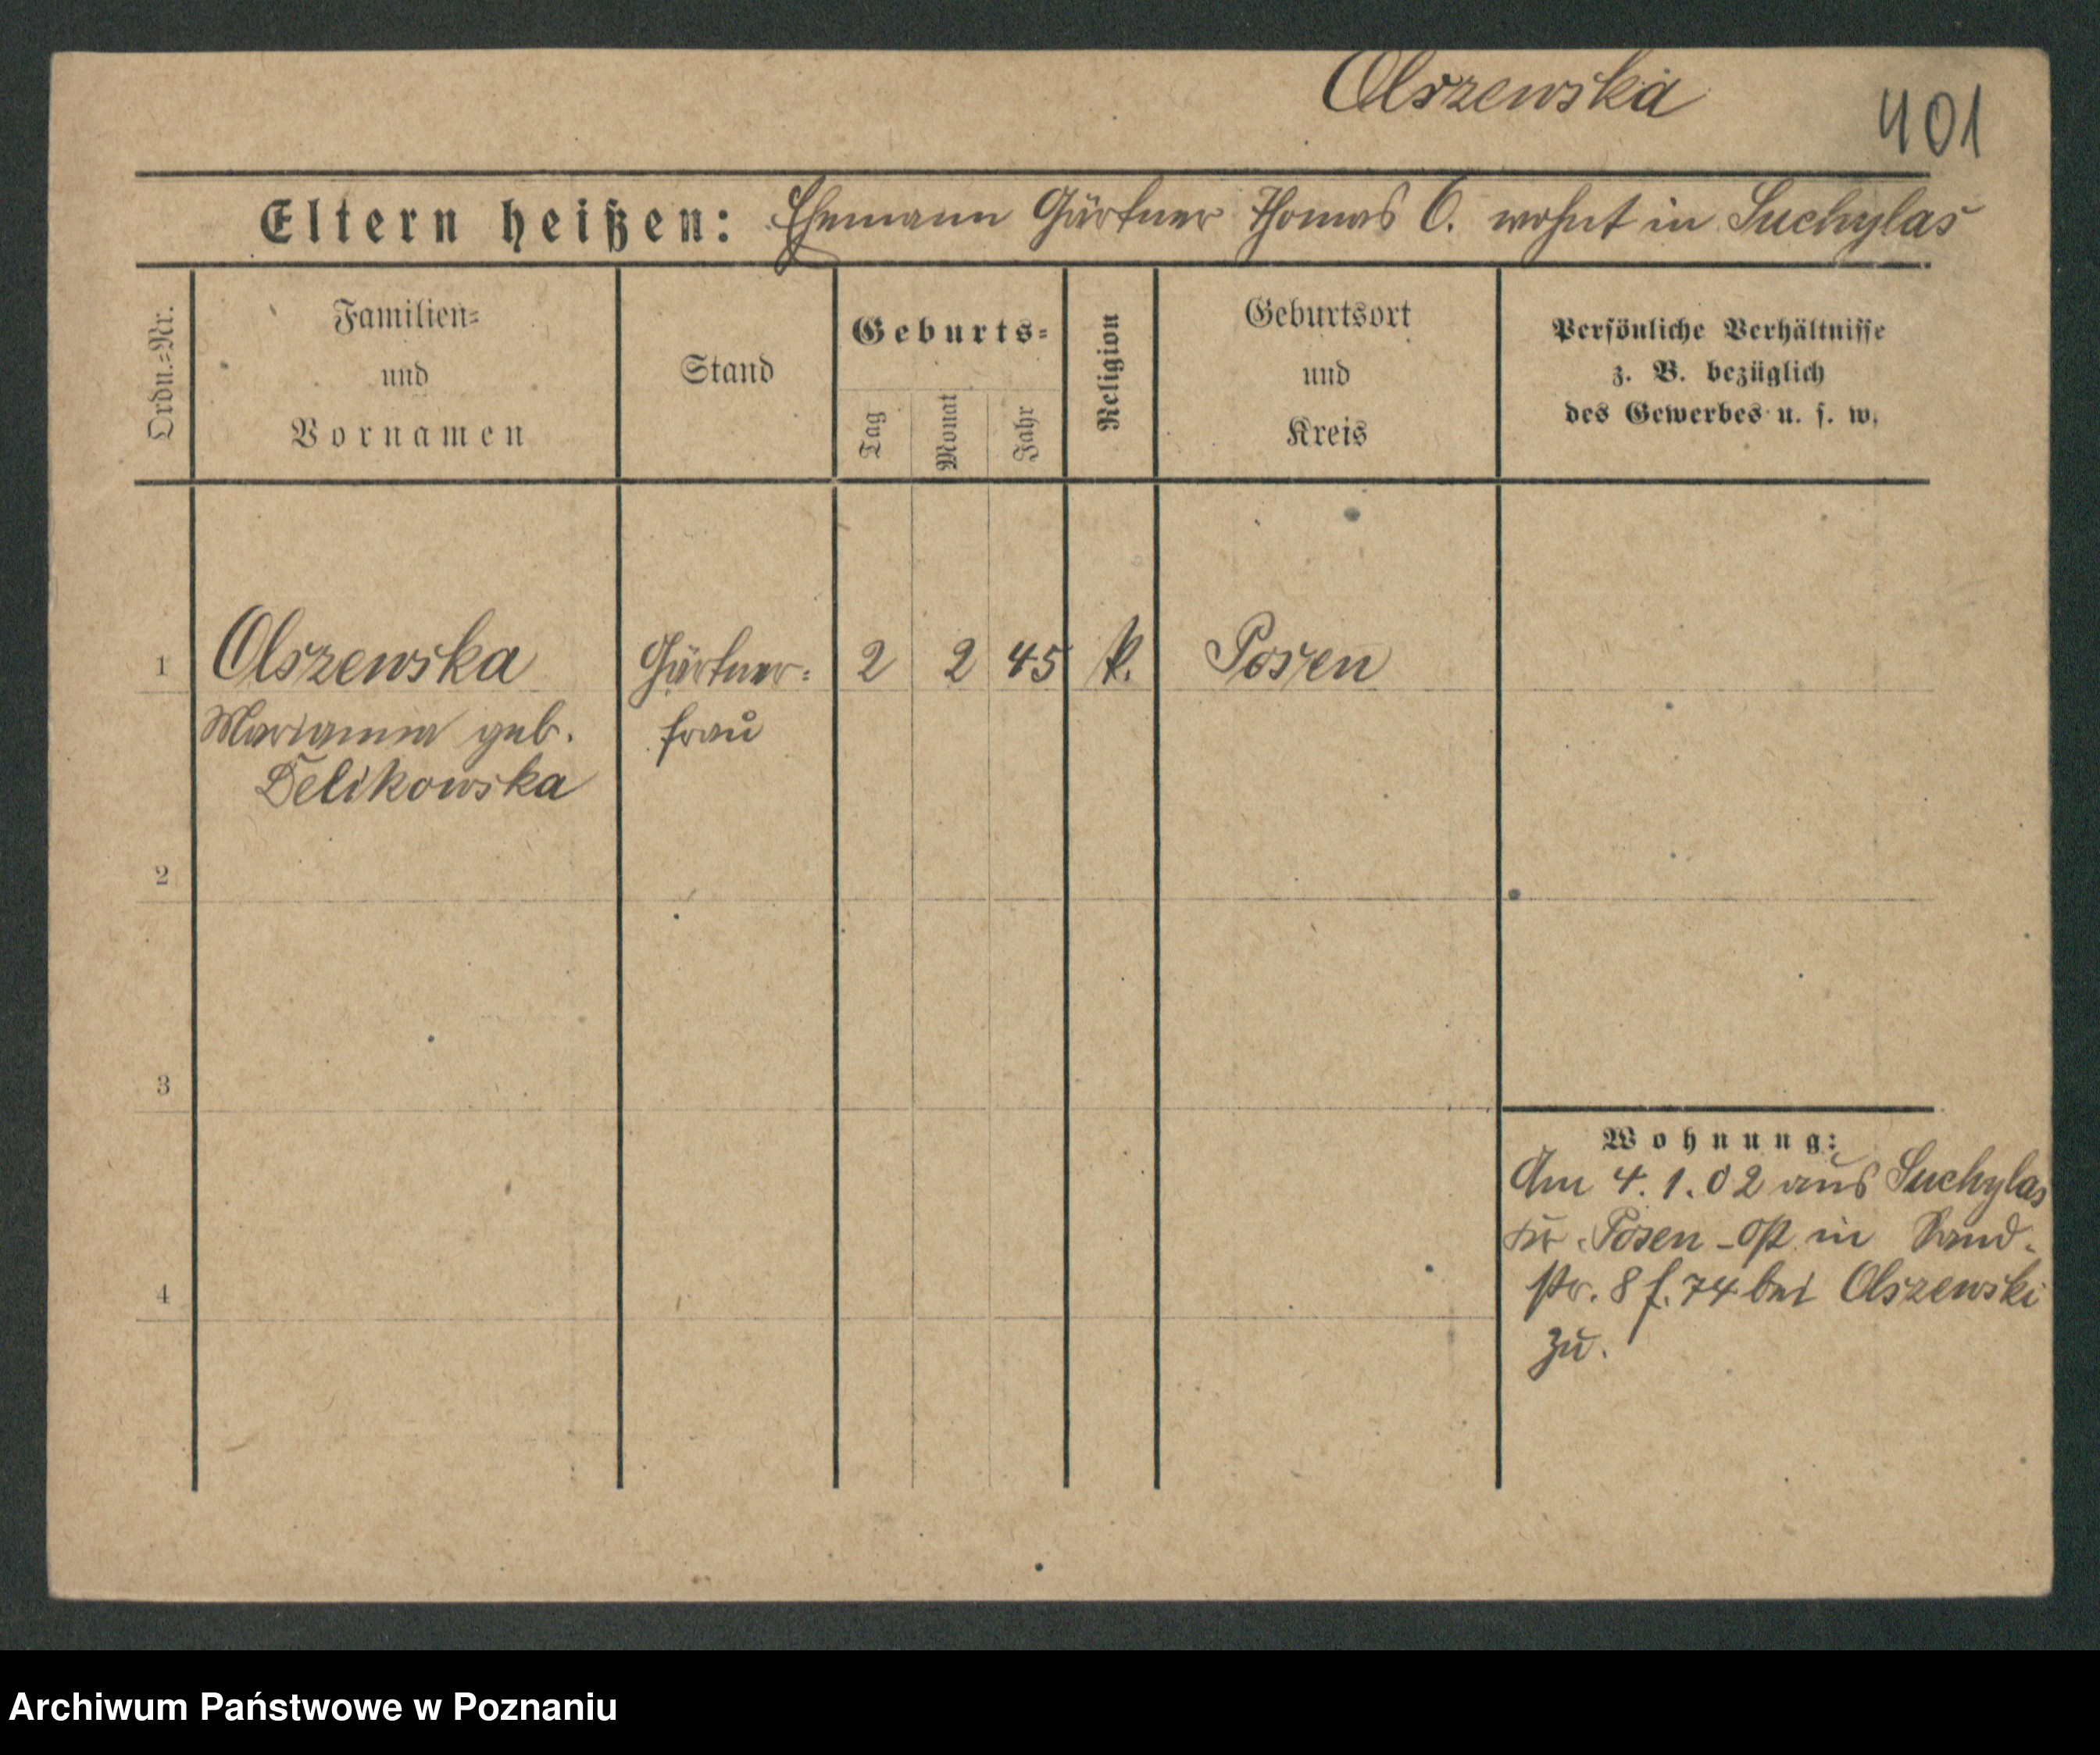 Olszewska
401
Eltern heißen: Ehemann Gärtner Thomas O. wohnt in Suchylas
Ordn.=Nr.
Familien=
und
Vornamen
Stand
Geburts=
Tag
Monat
Jahr
Religion
Geburtsort
und
Kreis
Persönliche Verhältnisse
z. B. bezüglich
des Gewerbes u. s. w.
1 Olszewska Gärtner= 2 2 45 k. Posen
Marianna geb. frau
Delikowska
2
3
4
Wohnung:
Am 4.1.02 aus Suchylas
Kr. Posen-Ost in
str. 8 f. 74 bei Olszewski
zu.
Archiwum Państwowe w Poznaniu